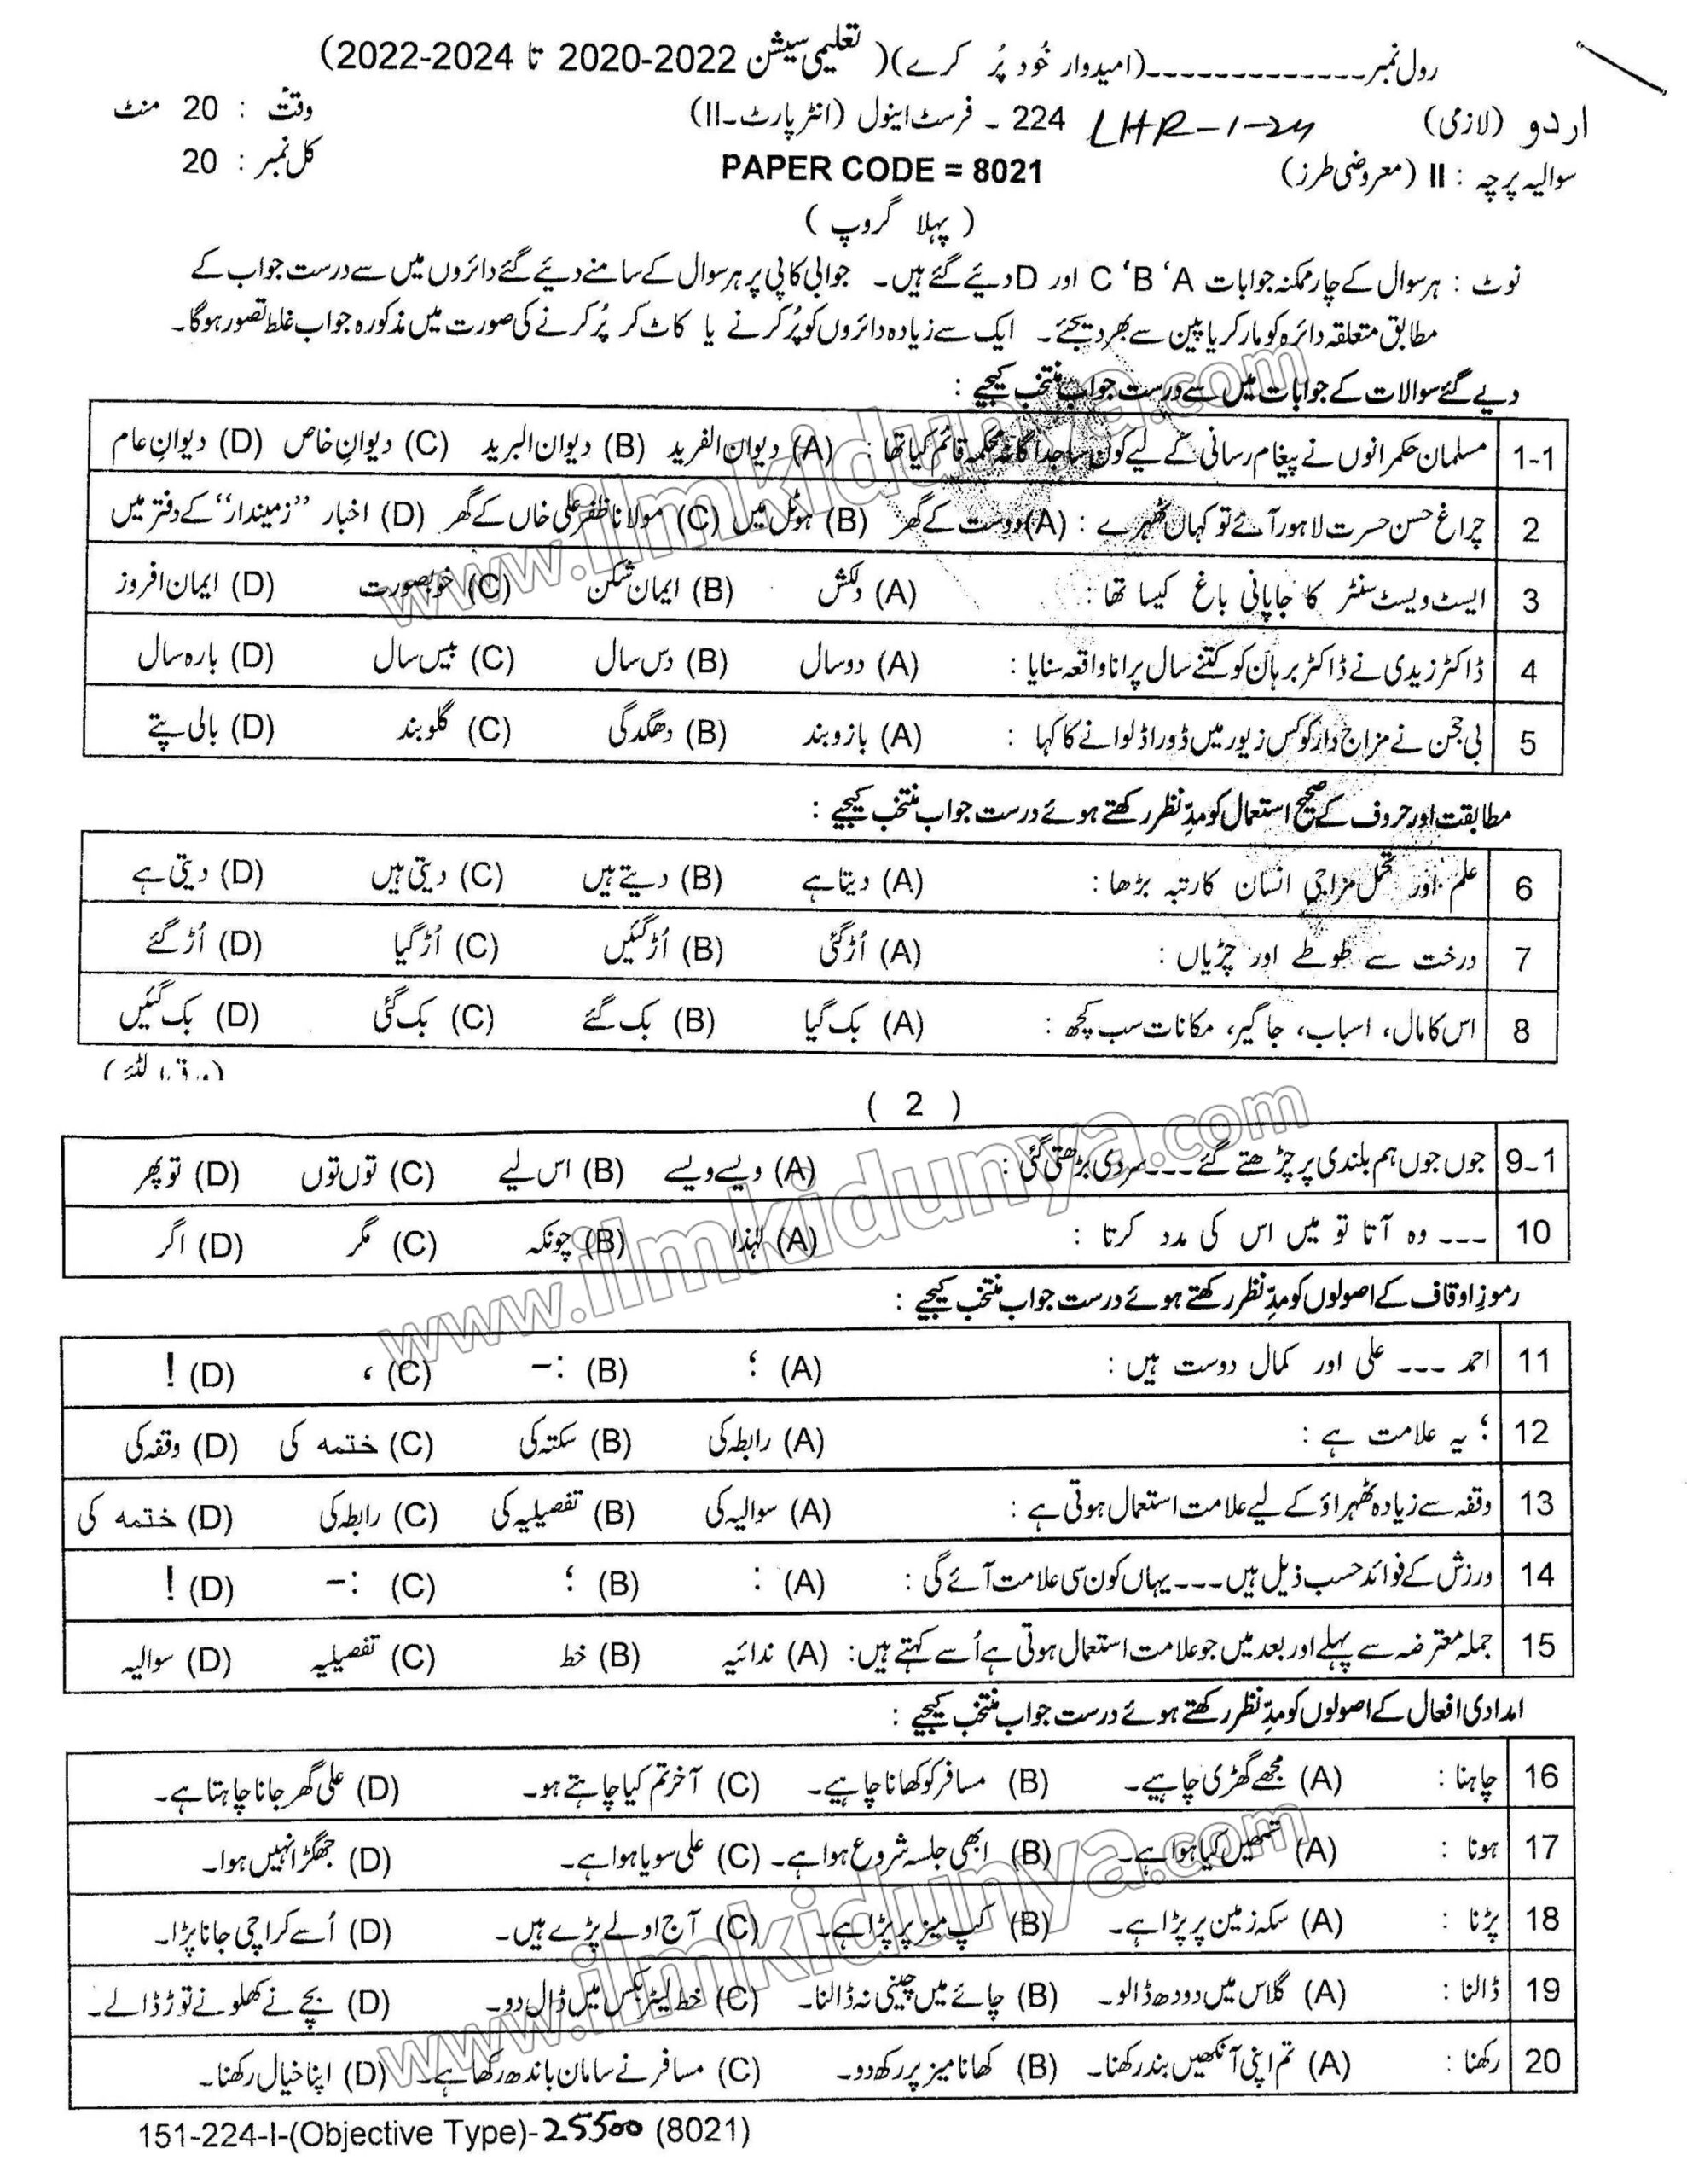 رول نمبر-------------(امیدوار خُود پُر کرے)( تعلیمی سیشن 2022-2020 تا 2024-2022)
اردو (لازمی) LHR-1-24 224 ۔ فرسٹ اینول (انٹر پارٹ-II) وقت : 20 منٹ
سوالیہ پرچہ : II (معروضی طرز) PAPER CODE = 8021 کل نمبر : 20
( پہلا گروپ )
نوٹ : ہر سوال کے چار ممکنہ جوابات A ‘B ‘C اور D دیئے گئے ہیں۔ جوابی کاپی پر ہر سوال کے سامنے دیئے گئے دائروں میں سے درست جواب کے
مطابق متعلقہ دائرہ کو مارکر یا پین سے بھر دیجئے۔ ایک سے زیادہ دائروں کو پُر کرنے یا کاٹ کر پُر کرنے کی صورت میں مذکورہ جواب غلط تصور ہوگا۔
دیے گئے سوالات کے جوابات میں سے درست جواب منتخب کیجیے :
1-1 مسلمان حکمرانوں نے پیغام رسانی کے لیے کون سا جداگانہ محکمہ قائم کیا تھا : (A) دیوان الفرید (B) دیوان البرید (C) دیوانِ خاص (D) دیوانِ عام
2 چراغ حسن حسرت لاہور آئے تو کہاں ٹھہرے : (A) دوست کے گھر (B) ہوٹل میں (C) مولانا ظفر علی خاں کے گھر (D) اخبار ”زمیندار“ کے دفتر میں
3 ایسٹ ویسٹ سنٹر کا جاپانی باغ کیسا تھا : (A) دلکش (B) ایمان شکن (C) خوبصورت (D) ایمان افروز
4 ڈاکٹر زیدی نے ڈاکٹر برہان کو کتنے سال پرانا واقعہ سنایا : (A) دو سال (B) دس سال (C) بیس سال (D) بارہ سال
5 بی حجن نے مزاج دار کو کس زیور میں ڈورا ڈلوانے کا کہا : (A) بازو بند (B) دھگدگی (C) گلو بند (D) بالی پتے
مطابقت اور حروف کے صحیح استعمال کو مدِّ نظر رکھتے ہوئے درست جواب منتخب کیجیے :
6 علم اور تحمل مزاجی انسان کا رتبہ بڑھا : (A) دیتا ہے (B) دیتے ہیں (C) دیتی ہیں (D) دیتی ہے
7 درخت سے طوطے اور چڑیاں : (A) اُڑ گئی (B) اُڑ گئیں (C) اُڑ گیا (D) اُڑ گئے
8 اس کا مال، اسباب، جاگیر، مکانات سب کچھ : (A) بک گیا (B) بک گئے (C) بک گئی (D) بک گئیں
(ورق الٹئے)
( 2 )
9-1 جوں جوں ہم بلندی پر چڑھتے گئے ---سردی بڑھتی گئی : (A) ویسے ویسے (B) اس لیے (C) توں توں (D) تو پھر
10 --- وہ آتا تو میں اس کی مدد کرتا : (A) لہٰذا (B) چونکہ (C) مگر (D) اگر
رموزِ اوقاف کے اصولوں کو مدِّ نظر رکھتے ہوئے درست جواب منتخب کیجیے :
11 احمد --- علی اور کمال دوست ہیں : (A) ؛ (B) :- (C) ، (D) !
12 ؛ یہ علامت ہے : (A) رابطہ کی (B) سکتہ کی (C) ختمہ کی (D) وقفہ کی
13 وقفہ سے زیادہ ٹھہراؤ کے لیے علامت استعمال ہوتی ہے : (A) سوالیہ کی (B) تفصیلیہ کی (C) رابطہ کی (D) ختمہ کی
14 ورزش کے فوائد حسب ذیل ہیں --- یہاں کون سی علامت آئے گی : (A) : (B) ؛ (C) :- (D) !
15 جملہ معترضہ سے پہلے اور بعد میں جو علامت استعمال ہوتی ہے اُسے کہتے ہیں: (A) ندائیہ (B) خط (C) تفصیلیہ (D) سوالیہ
امدادی افعال کے اصولوں کو مدِّ نظر رکھتے ہوئے درست جواب منتخب کیجیے :
16 چاہنا : (A) مجھے گھڑی چاہیے۔ (B) مسافر کو کھانا چاہیے۔ (C) آخر تم کیا چاہتے ہو۔ (D) علی گھر جانا چاہتا ہے۔
17 ہونا : (A) تمھیں کیا ہوا ہے۔ (B) ابھی جلسہ شروع ہوا ہے۔ (C) علی سویا ہوا ہے۔ (D) جھگڑا نہیں ہوا۔
18 پڑنا : (A) سکہ زمین پر پڑا ہے۔ (B) کپ میز پر پڑا ہے۔ (C) آج اولے پڑے ہیں۔ (D) اُسے کراچی جانا پڑا۔
19 ڈالنا : (A) گلاس میں دودھ ڈالو۔ (B) چائے میں چینی نہ ڈالنا۔ (C) خط لیٹر بکس میں ڈال دو۔ (D) بچے نے کھلونے توڑ ڈالے۔
20 رکھنا : (A) تم اپنی آنکھیں بند رکھنا۔ (B) کھانا میز پر رکھ دو۔ (C) مسافر نے سامان باندھ رکھا ہے۔ (D) اپنا خیال رکھنا۔
151-224-I-(Objective Type)-25500 (8021)
www.ilmkidunya.com
www.ilmkidunya.com
www.ilmkidunya.com